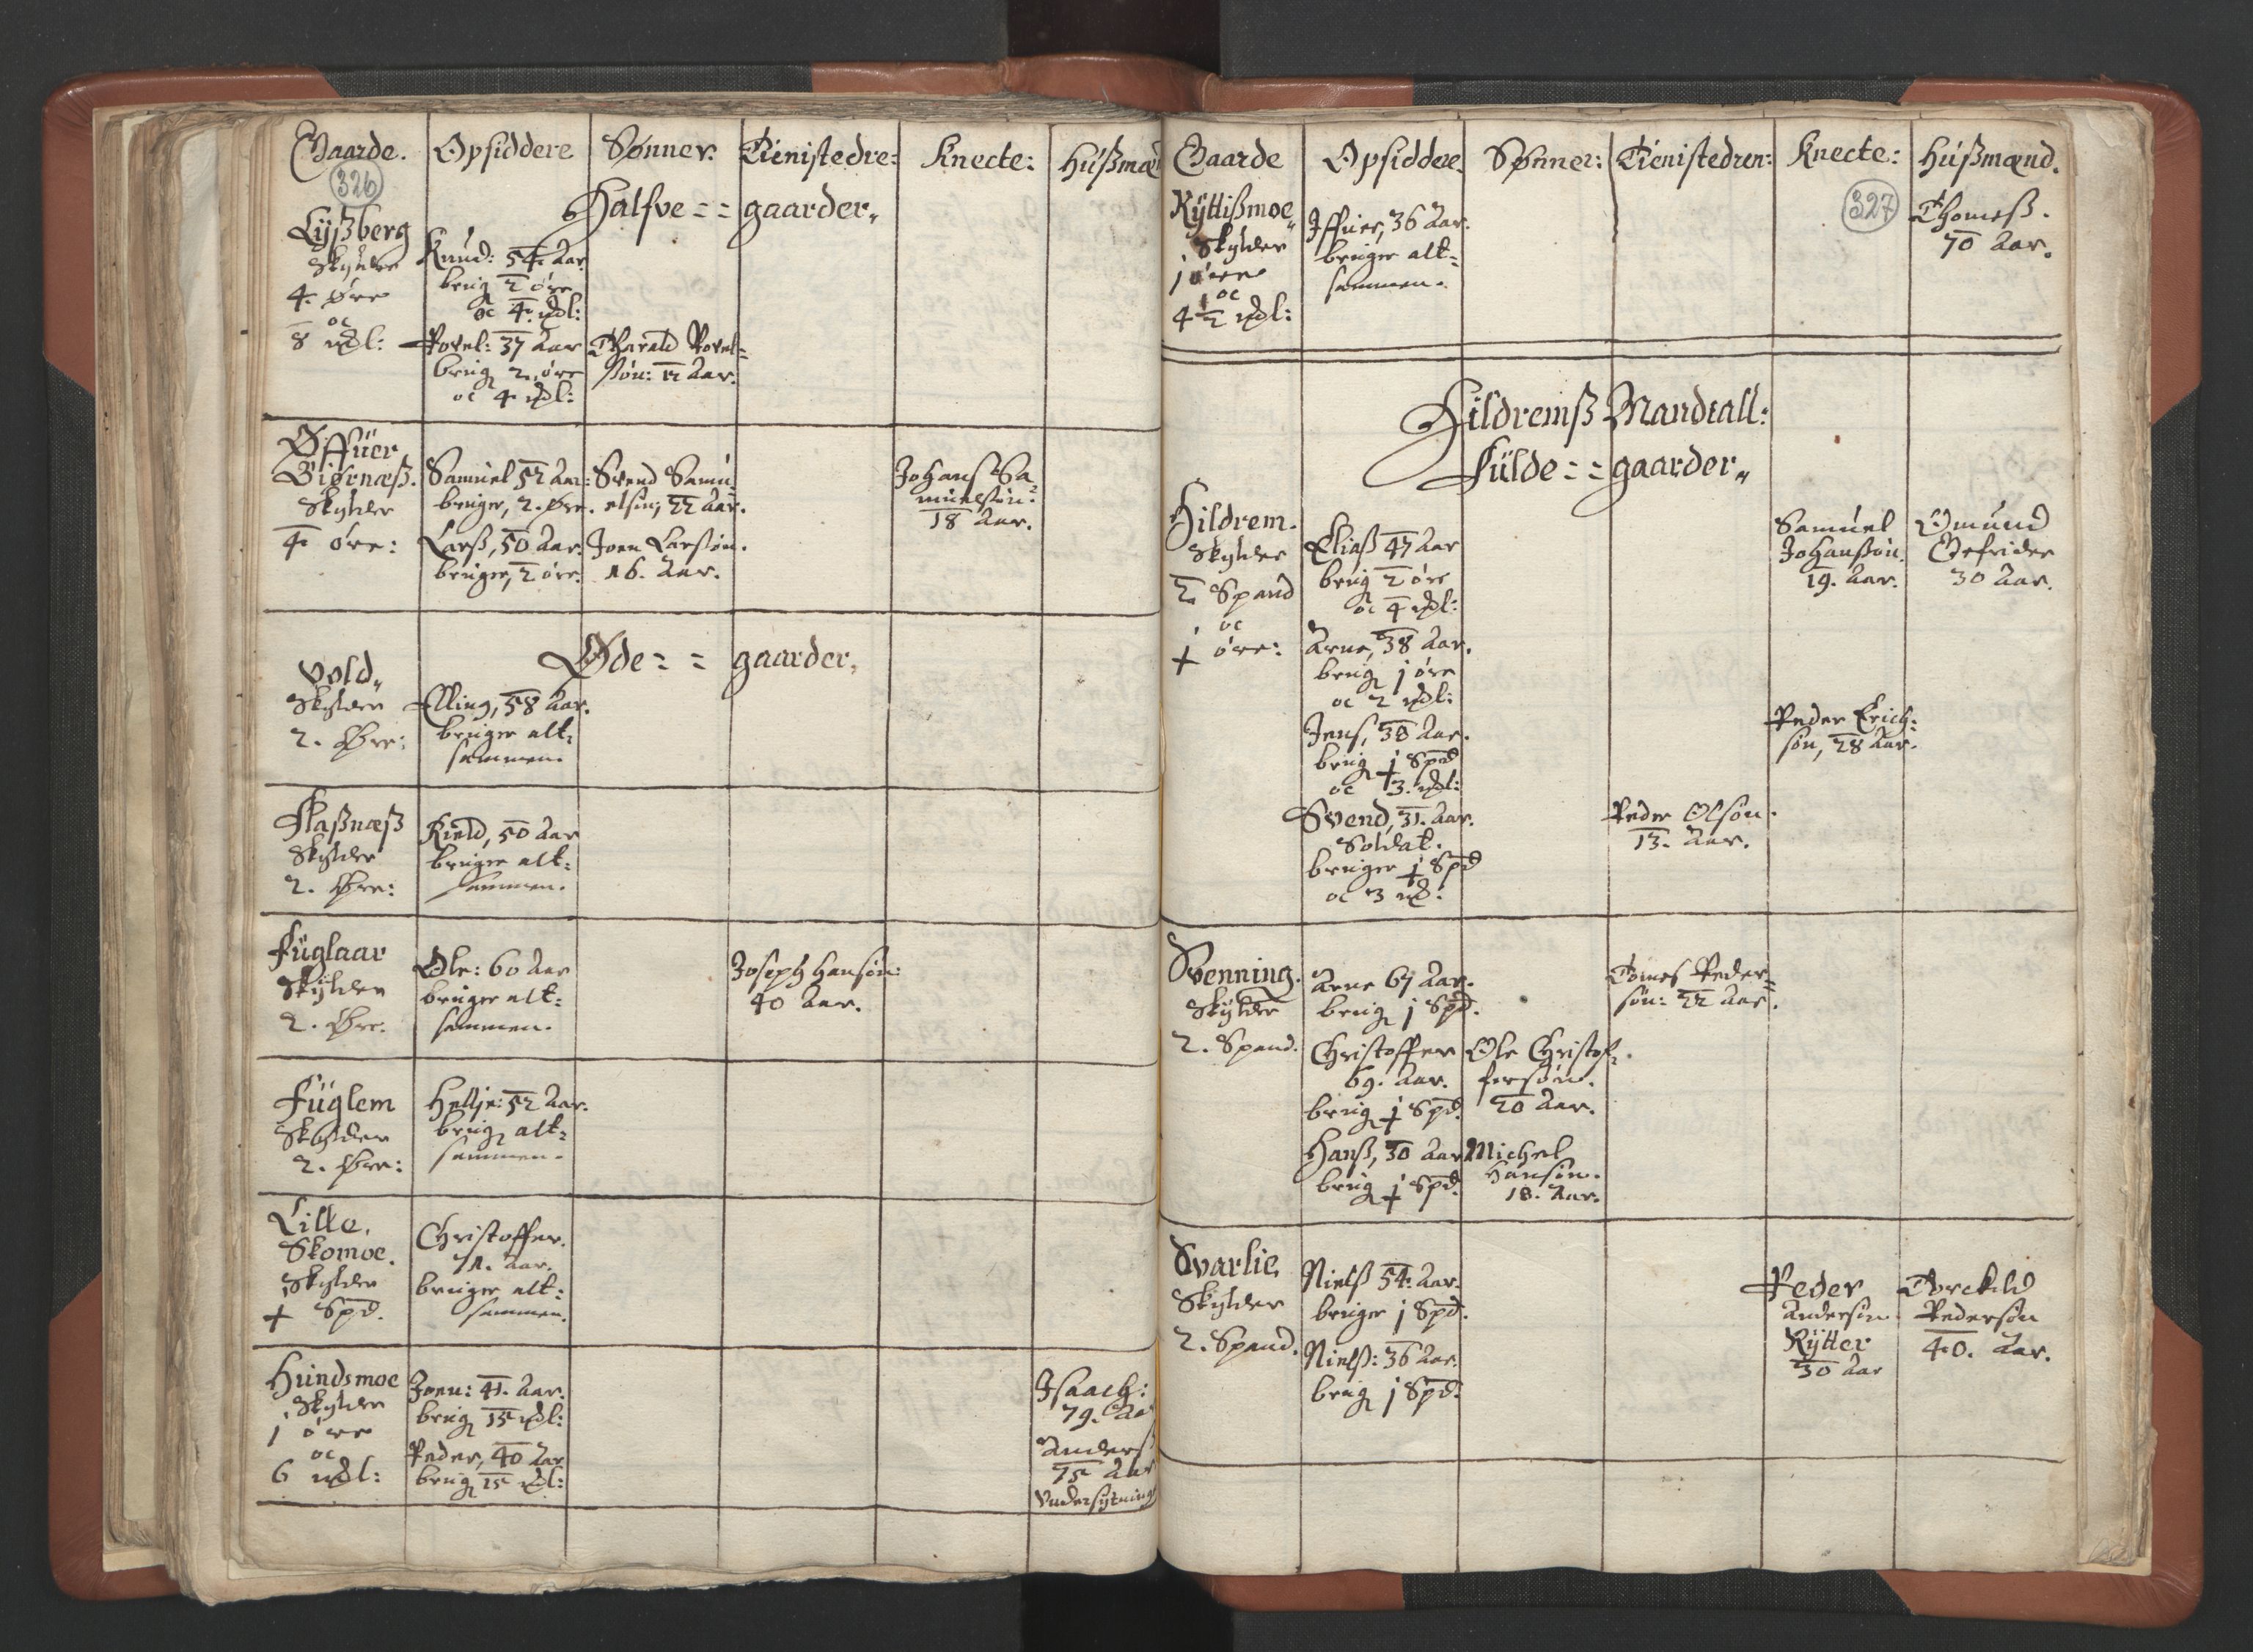 Gaarde. Opsiddere Sønner: Tienistedre: Knecte: Hüßmæ
326
Halfve = = gaarder„
Lyßberg
Skylder
4. øre
oc
8 mkl:
Knud: 54. Aar
brug 2 øre
oc 4. mkl:
Povel: 37 Aar
brug 2„ øre
oc 4 mkl:
Tharald Povel=
søn: 12 Aar.
Øffüer
Biørnæß.
Skylder
4. øre:
Samuel 52 Aar:
bruger, 2. Øre.
Larß, 50 Aar.
bruger, 2 øre.
Svend Samu=
elsøn, 22 Aar.
Joen Larsøn.
16. Aar.
Johans Sa=
muelsøn.
18 Aar.
Øde = = gaarder,
Vold„
Skylder
2. Øre:
Elling, 58 Aar.
bruger alt=
sammen.
Flaßnæß
Skylder
2. Øre:
Kield, 50 Aar
bruger alt=
sammen.
Füglaar
Skylder
2. Øre.
Ole: 60 Aar
bruger alt=
sammen.
Joseph Hansøn:
40 Aar.
Füglem
Skylder
2. Øre:
Hellje: 52 Aar.
brug alt=
sammen.
Lille.
Skomoe.
Skylder
Spd.
Christoffer.
71. Aar.
bruger alt=
sammen.
Hundsmoe
Skylder
1 øre
oc
6 mkl:
Joen: 41. Aar.
brug 15 mkl:
Peder, 40 Aar
brug 15 mkl:
Isaach:
79. Aa
Anders
75 Aar
Vndersætning
Gaarde Opsiddere. Sønner: Tienistedren: Knecte: Hüßmænd.
327
Ryttißmoe„
Skylder
1 øre
oc
4½ mkl:
Iffuer, 36 Aar.
bruger alt=
sammen.
Thomeß.
70 Aar.
Hildremß Mandtall:
Fülde = = gaarder„
Hildrem.
Skylder
2. Spand
oc
øre:
Eliaß 47 Aar
brug 2 øre
oc 4 mkl:
Arne, 38 Aar.
brug 1 øre
oc 2 mkl:
Jens, 38 Aar.
brug Spd
oc 3. mkl:
Svend, 31. Aar.
Soldat.
bruger Spd
oc 3 mk:
Peder Olsøn.
13. Aar.
Samuel
Johanßøn.
19. Aar.
Peder Erich=
søn, 28 Aar.
Omund
Gefrider
30 Aar.
Svenning.
Skylder
2. Spand.
Arne 67 Aar.
brug 1 Spd.
Christoffer
69. Aar.
brug Spd.
Hanß, 30 Aar
brug Spd.
Ole Christof=
fersøn.
20 Aar.
Michel
Hansøn.
18. Aar.
Tomes Peder=
søn: 22 Aar.
Svarlie
Skylder
2. Spand.
Nielß 54. Aar.
bruger 1 Spd.
Nielß: 36 Aar.
brug 1 Spd:
Peder
Andersøn
Rytter
30 Aar
Torckild
Pedersøn
40. Aar.